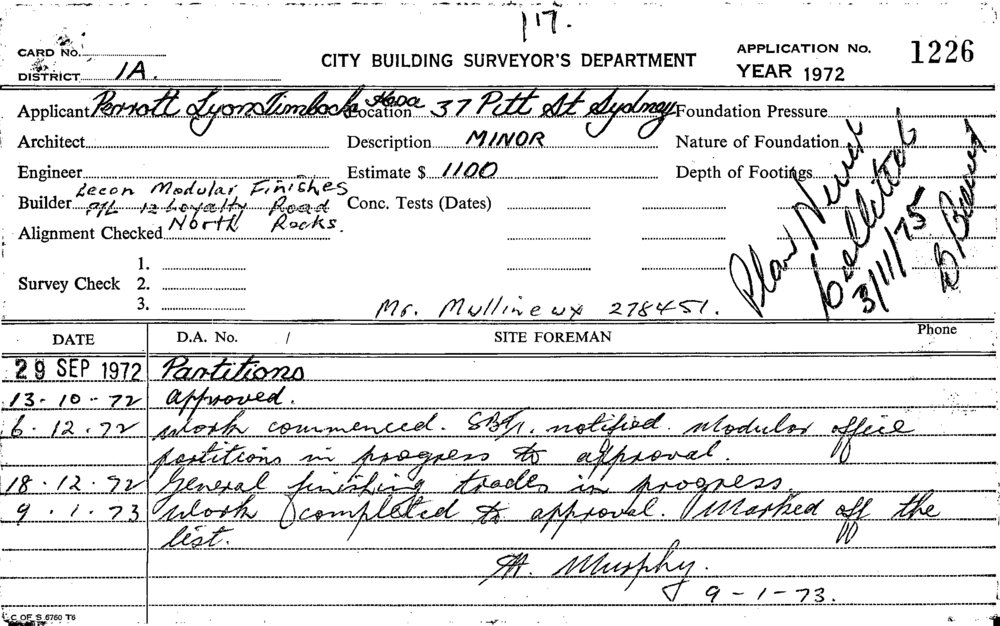 117.
CARD No.
DISTRICT 1A.
CITY BUILDING SURVEYOR'S DEPARTMENT
APPLICATION No. 1226
YEAR 1972
Applicant Perrott Lyon Timlock Location 37 Pitt St Sydney Foundation Pressure
Architect Description MINOR Nature of Foundation
Engineer Estimate $ 1100 Depth of Footings
Builder Lecon Modular Finishes
P/L 12 Loyalty Road
North Rocks.
Conc. Tests (Dates)
Alignment Checked
Survey Check 1.
2.
3.
Plan Never
Collected
3/11/75
Mr. Mullineux 278451.
DATE D.A. No. / SITE FOREMAN Phone
29 SEP 1972 Partitions
13-10-72 approved.
6.12.72 Work commenced. notified. Modular office
partitions in progress to approval.
18.12.72 General finishing trades in progress.
9.1.73 Work completed to approval. Marked off the
list.
Murphy.
9-1-73.
C OF S 6760 T6